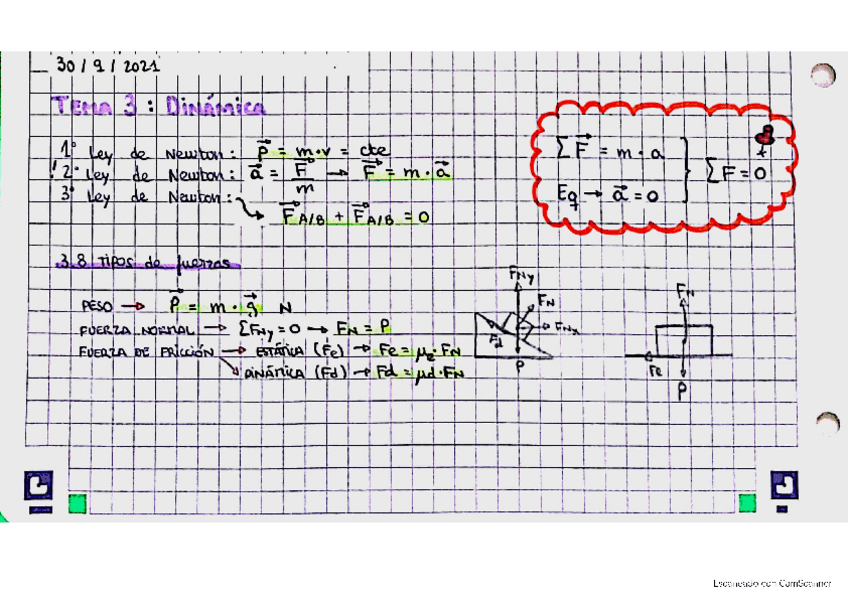 30/9/2021
TEMA 3: Dinámica
1ª Ley de Newton: P⃗ = m·v = cte
! 2ª Ley de Newton: a⃗ = F⃗/m → F⃗ = m·a⃗
3ª Ley de Newton: → F⃗A/B + F⃗A/B = 0
ΣF⃗ = m·a
Eq → a⃗ = 0
ΣF = 0
3.8 Tipos de fuerzas
PESO → P⃗ = m·g⃗ N
FUERZA NORMAL → ΣFNy = 0 → FN = P
FUERZA DE FRICCIÓN → ESTÁTICA (Fe) → Fe = μe·FN
→ DINÁMICA (Fd) → Fd = μd·FN
FNy
FN
FNx
Fd
P
FN
Fe
P
Escaneado con CamScanner